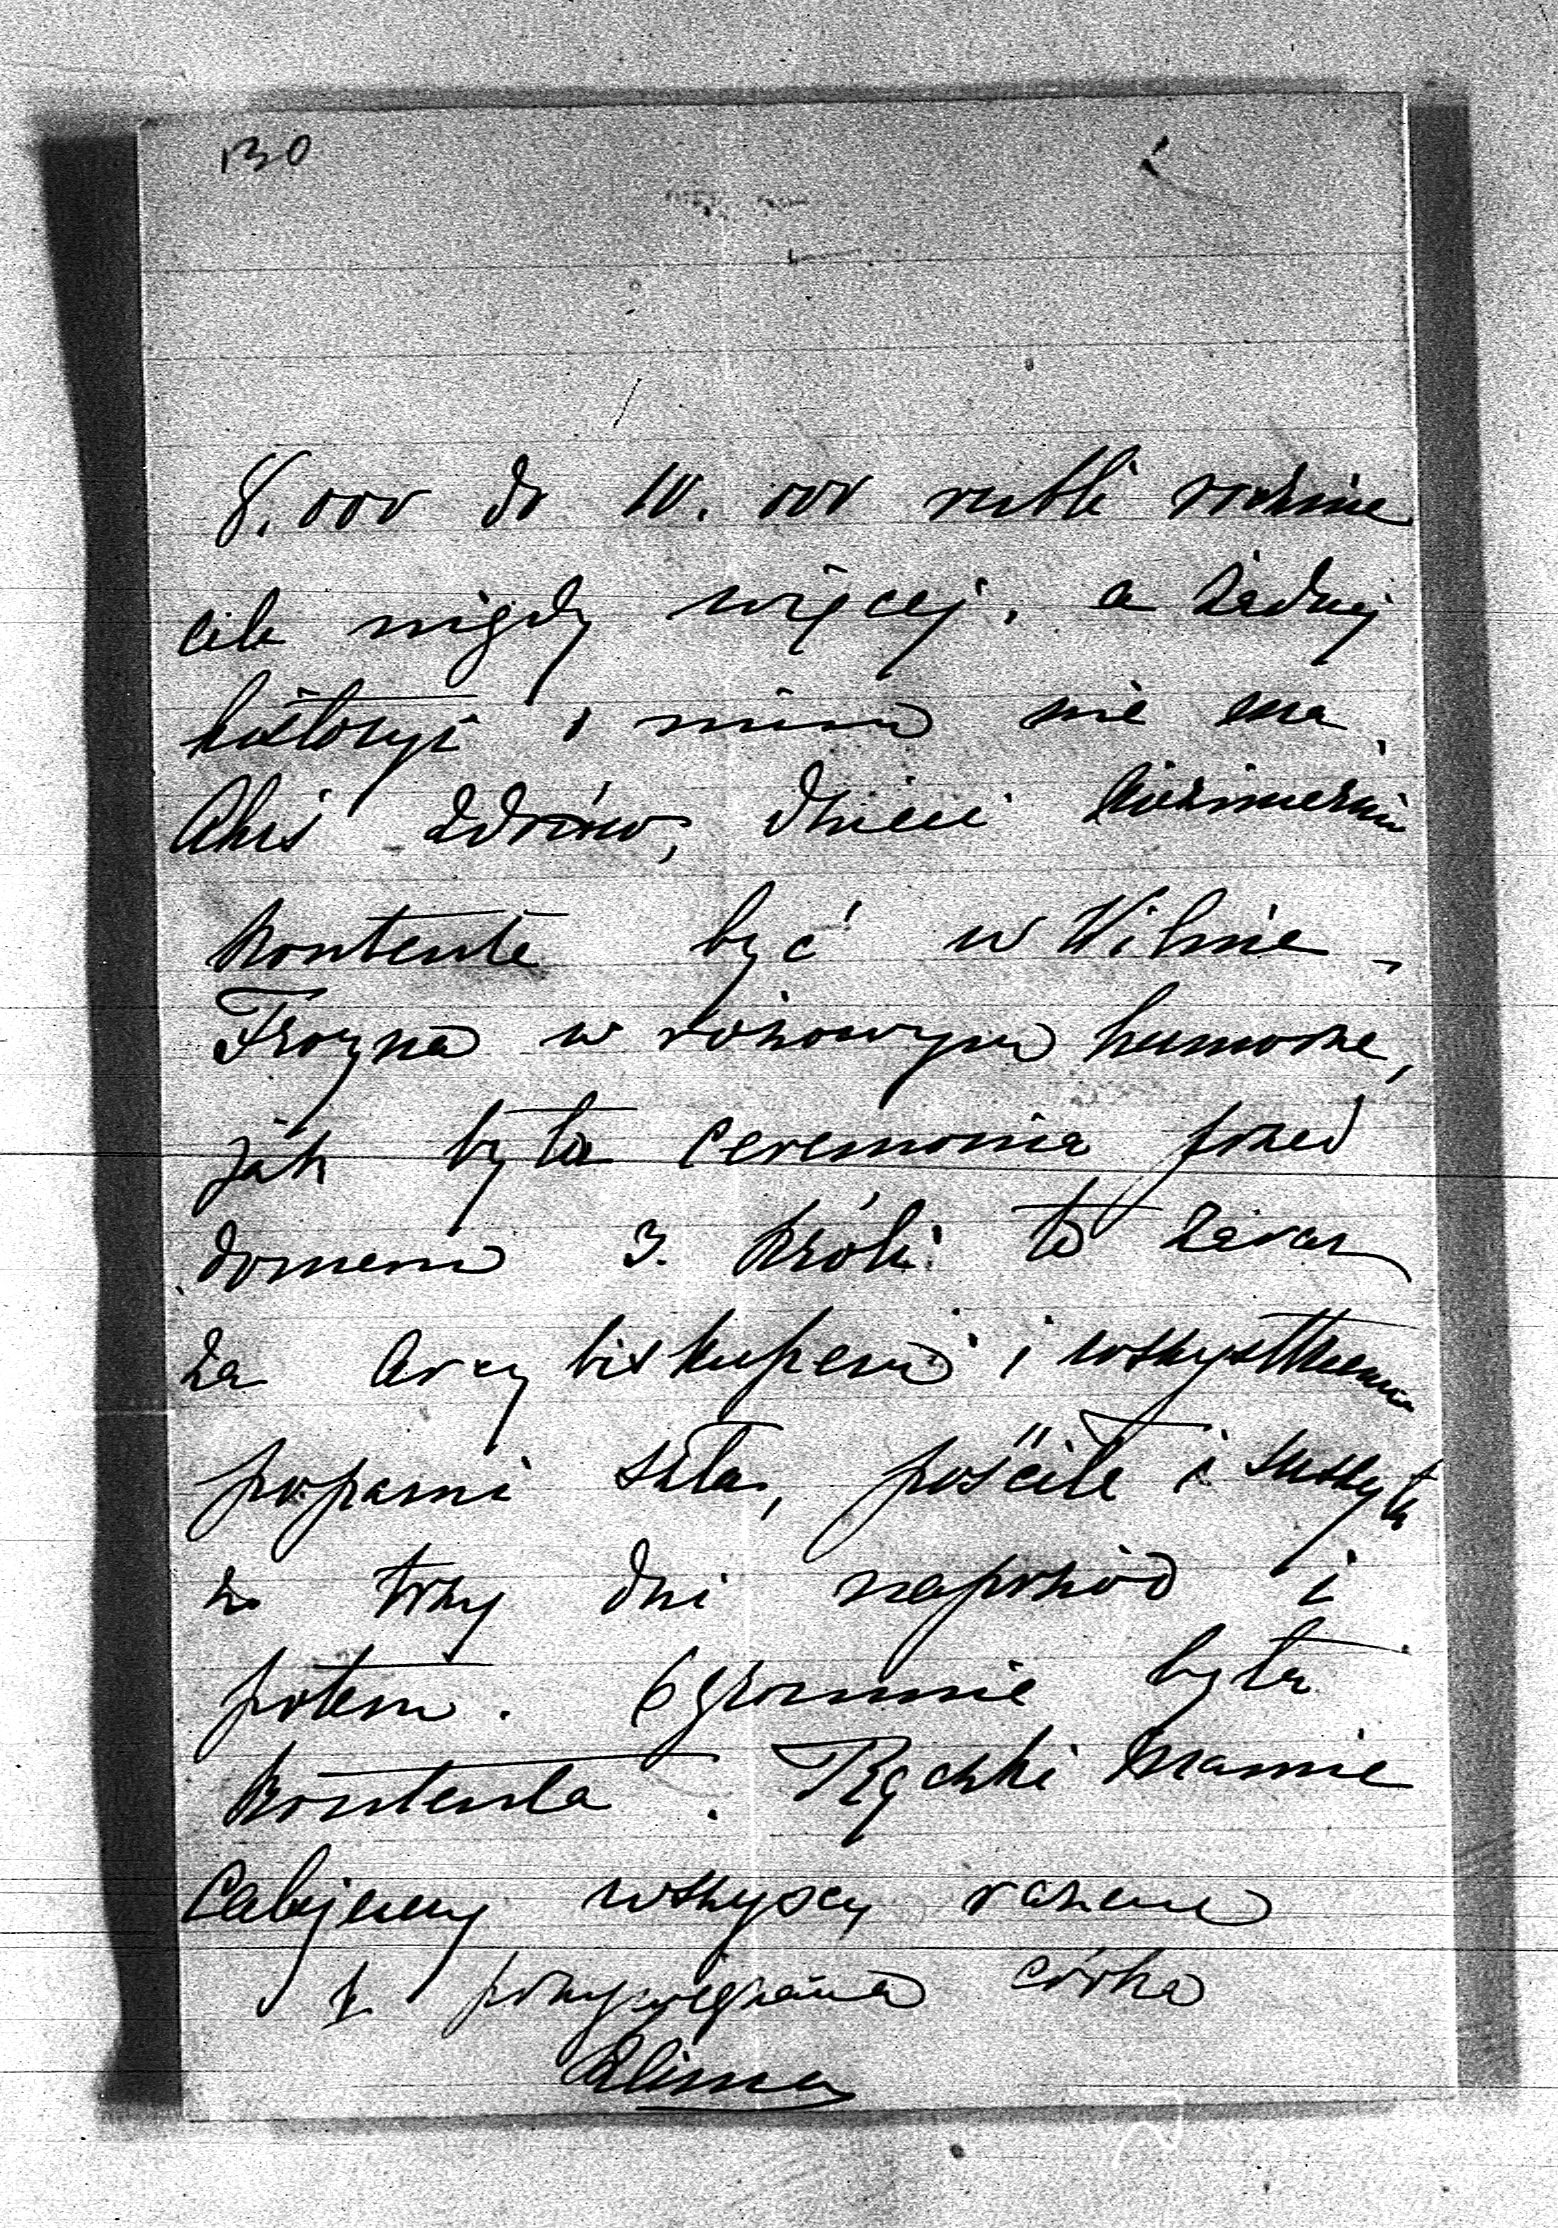 130
8.000 do 10.000 rubli rocznie
ale nigdy więcej, a żadnej
historyi o nim nie ma.
Aluś zdrów, dzieci
kontente być w Wilnie,
Frozyna w różowym humorze,
jak była ceremonia przed
domem 3. króli to zaraz
za Arcybiskupem i wszystkiemi
popami szła, pościła i suszyła
z trzy dni naprzód i
potem. Ogromnie była
kontenta. Rączki Mamie
Całujemy wszyscy razem
i przywiązana córka
Alina